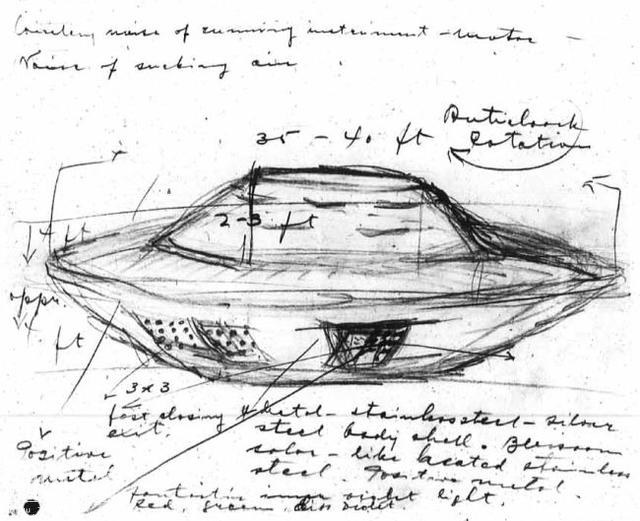 noise of running instrument - motor -
Noise of sucking air
35 - 40 ft
Anticlock
Rotation
2-3 ft
ft
appr.
ft
3 x 3
fast closing
exit.
Metal - stainless steel - silver
steel body shell.
color - like heated stainless
steel. Positive metal.
Positive
Fantastic inner violet light,
Red, green, violet